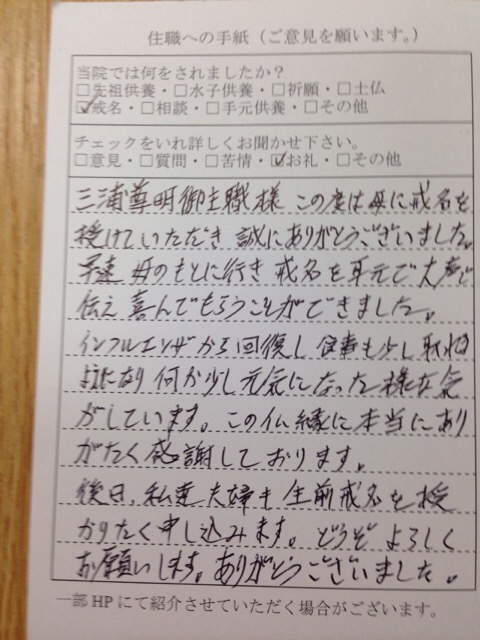 住職への手紙（ご意見を願います。）
当院では何をされましたか？
□先祖供養・□水子供養・□祈願・□土仏
☑戒名・□相談・□手元供養・□その他
チェックをいれ詳しくお聞かせ下さい。
□意見・□質問・□苦情・☑お礼・□その他
三浦尊明御主職様 この度は母に戒名を
授けていただき 誠にありがとうございました。
早速 母のもとに行き 戒名を耳元で大声で
伝え 喜んでもらうことができました。
インフルエンザから回復し 食事も少し取れる
ようになり 何か少し元気になった様な気
がしています。この仏縁に本当にあり
がたく感謝しております。
後日、私達夫婦も生前戒名を授
かりたく申し込みます。どうぞよろしく
お願いします。ありがとうございました。
一部HPにて紹介させていただく場合がございます。